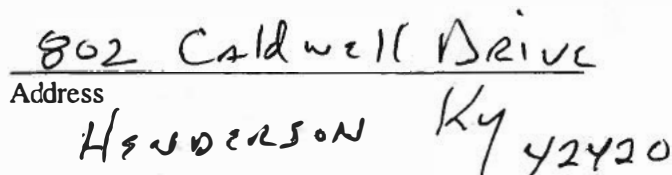 802 Caldwell Drive
Address
Henderson Ky 42420